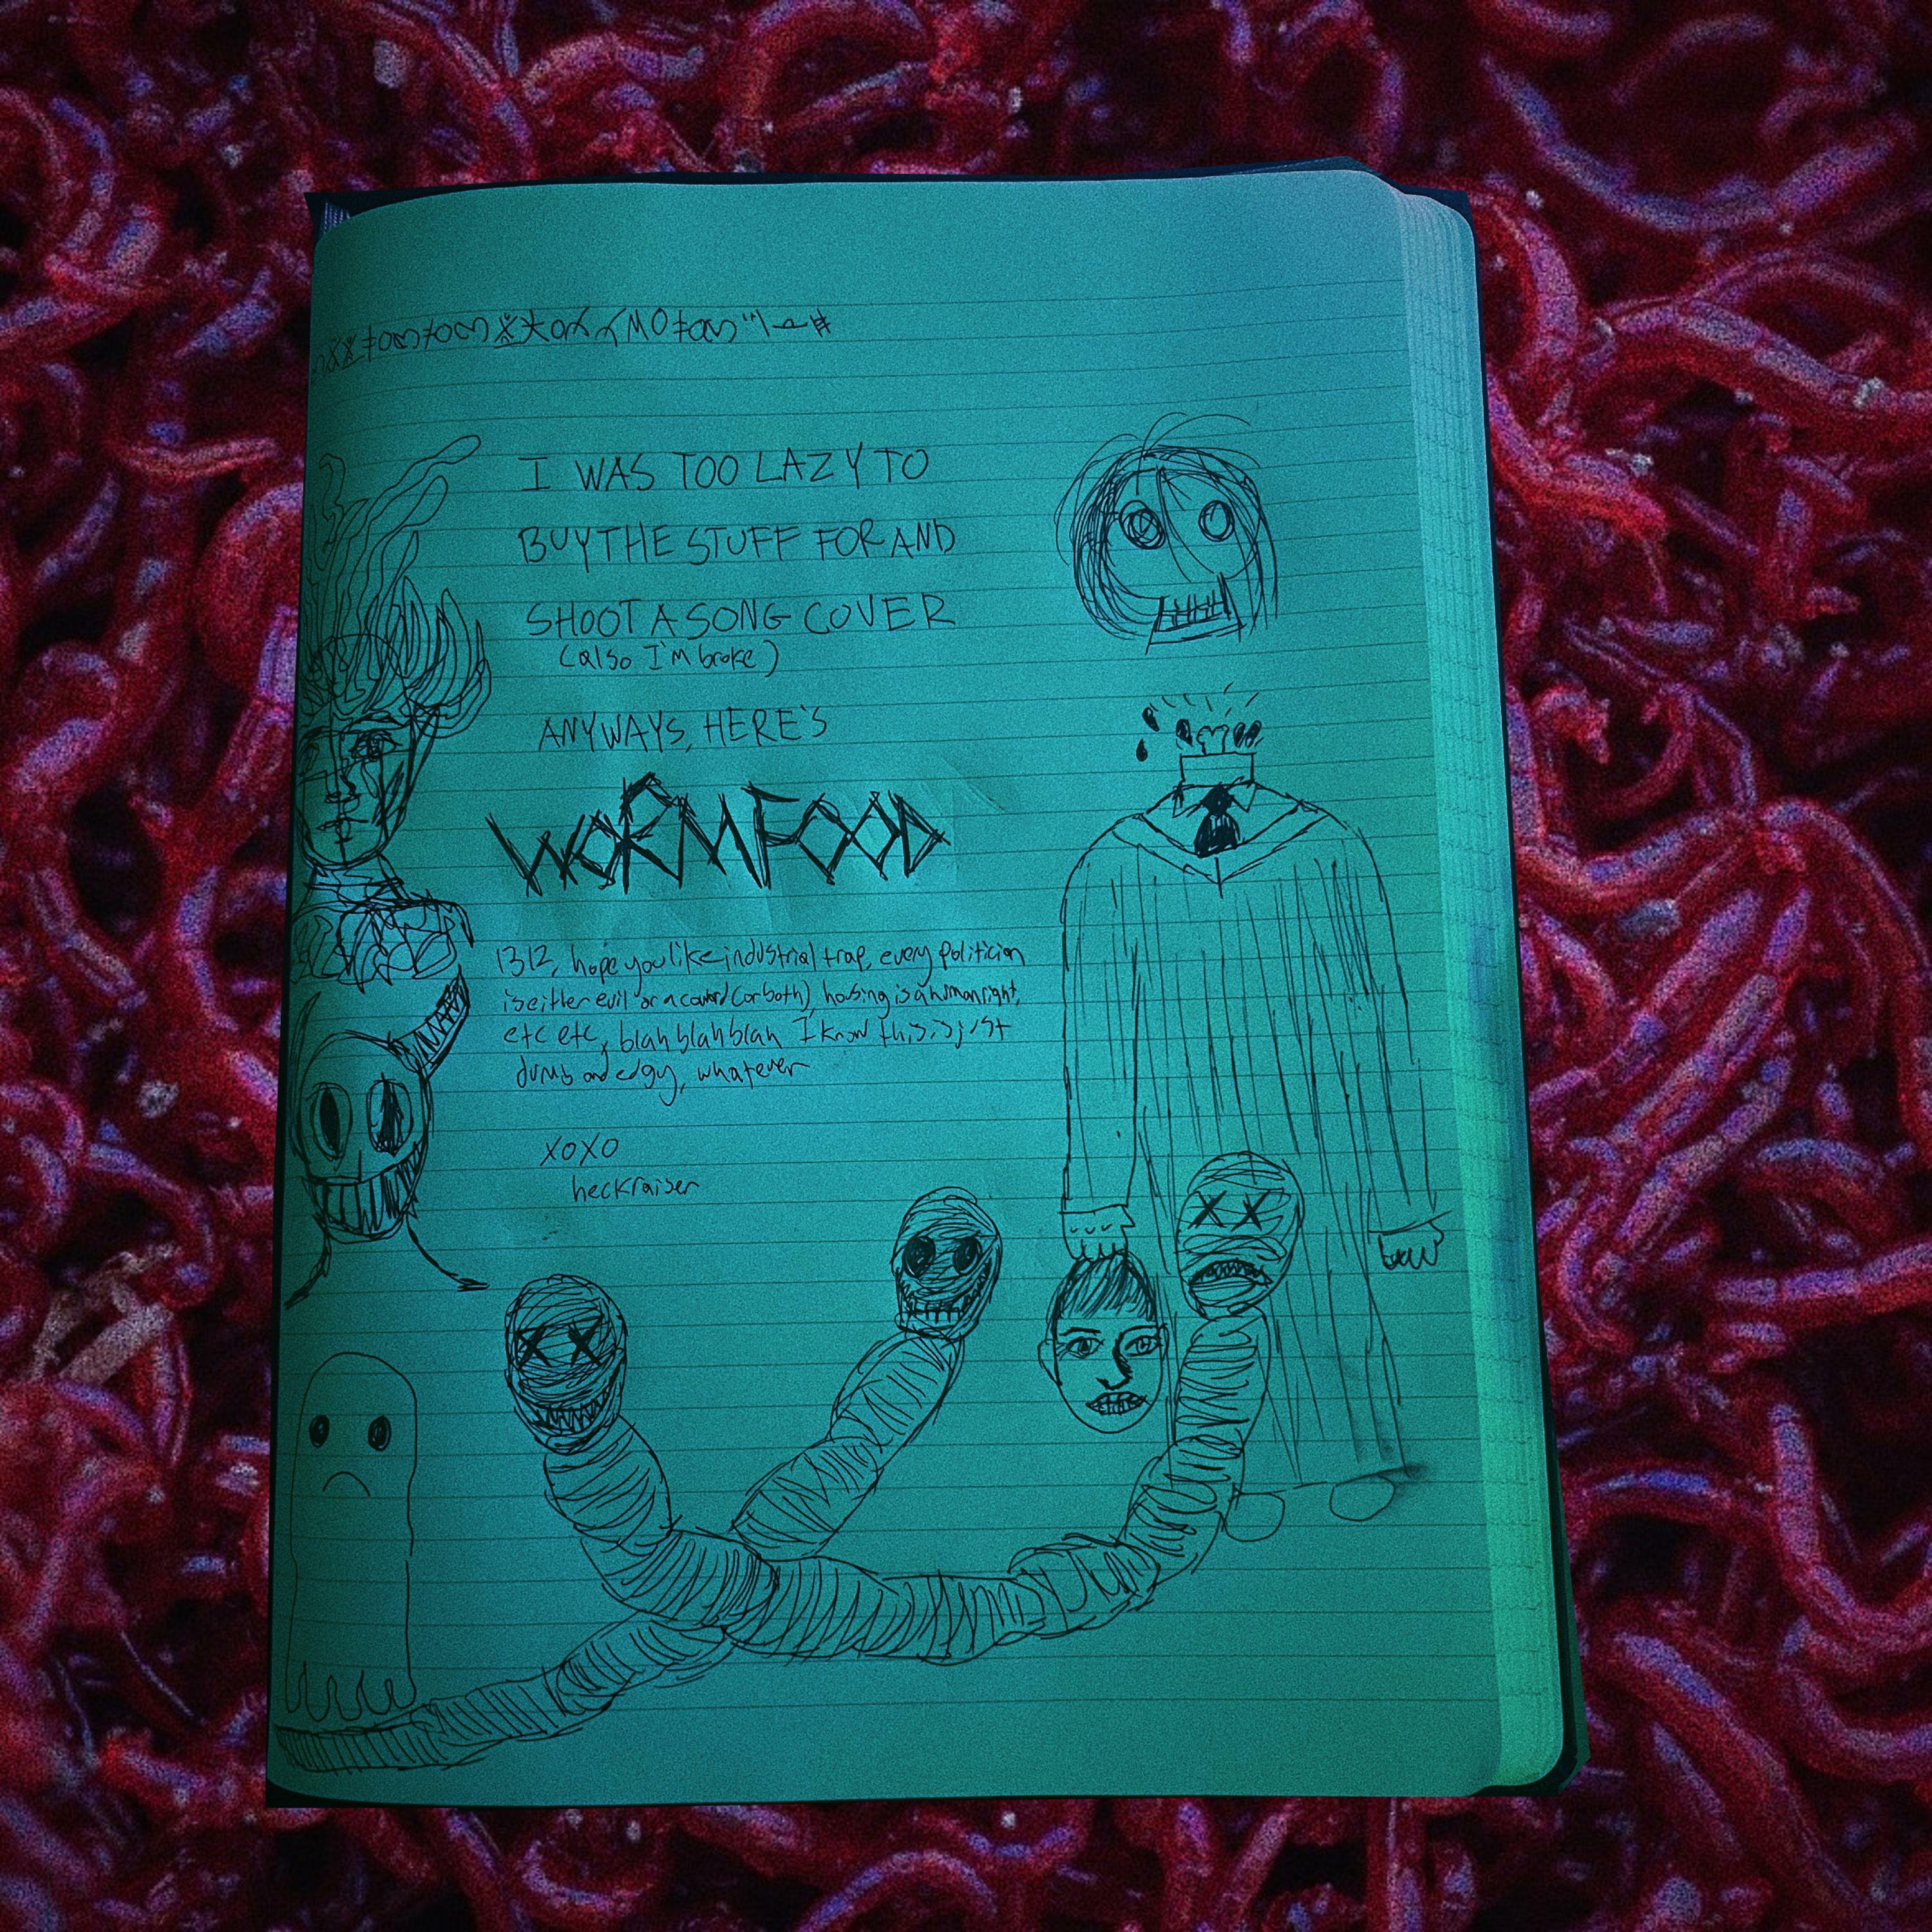 I WAS TOO LAZY TO
BUY THE STUFF FOR AND
SHOOT A SONG COVER
(also I'm broke)
ANYWAYS, HERE'S
WORMFOOD
1312, hope you like industrial trap, every politician
is either evil or a coward (or both), housing is a human right,
etc etc, blah blah blah I know this is just
dumb and edgy, whatever
XOXO
heckraiser